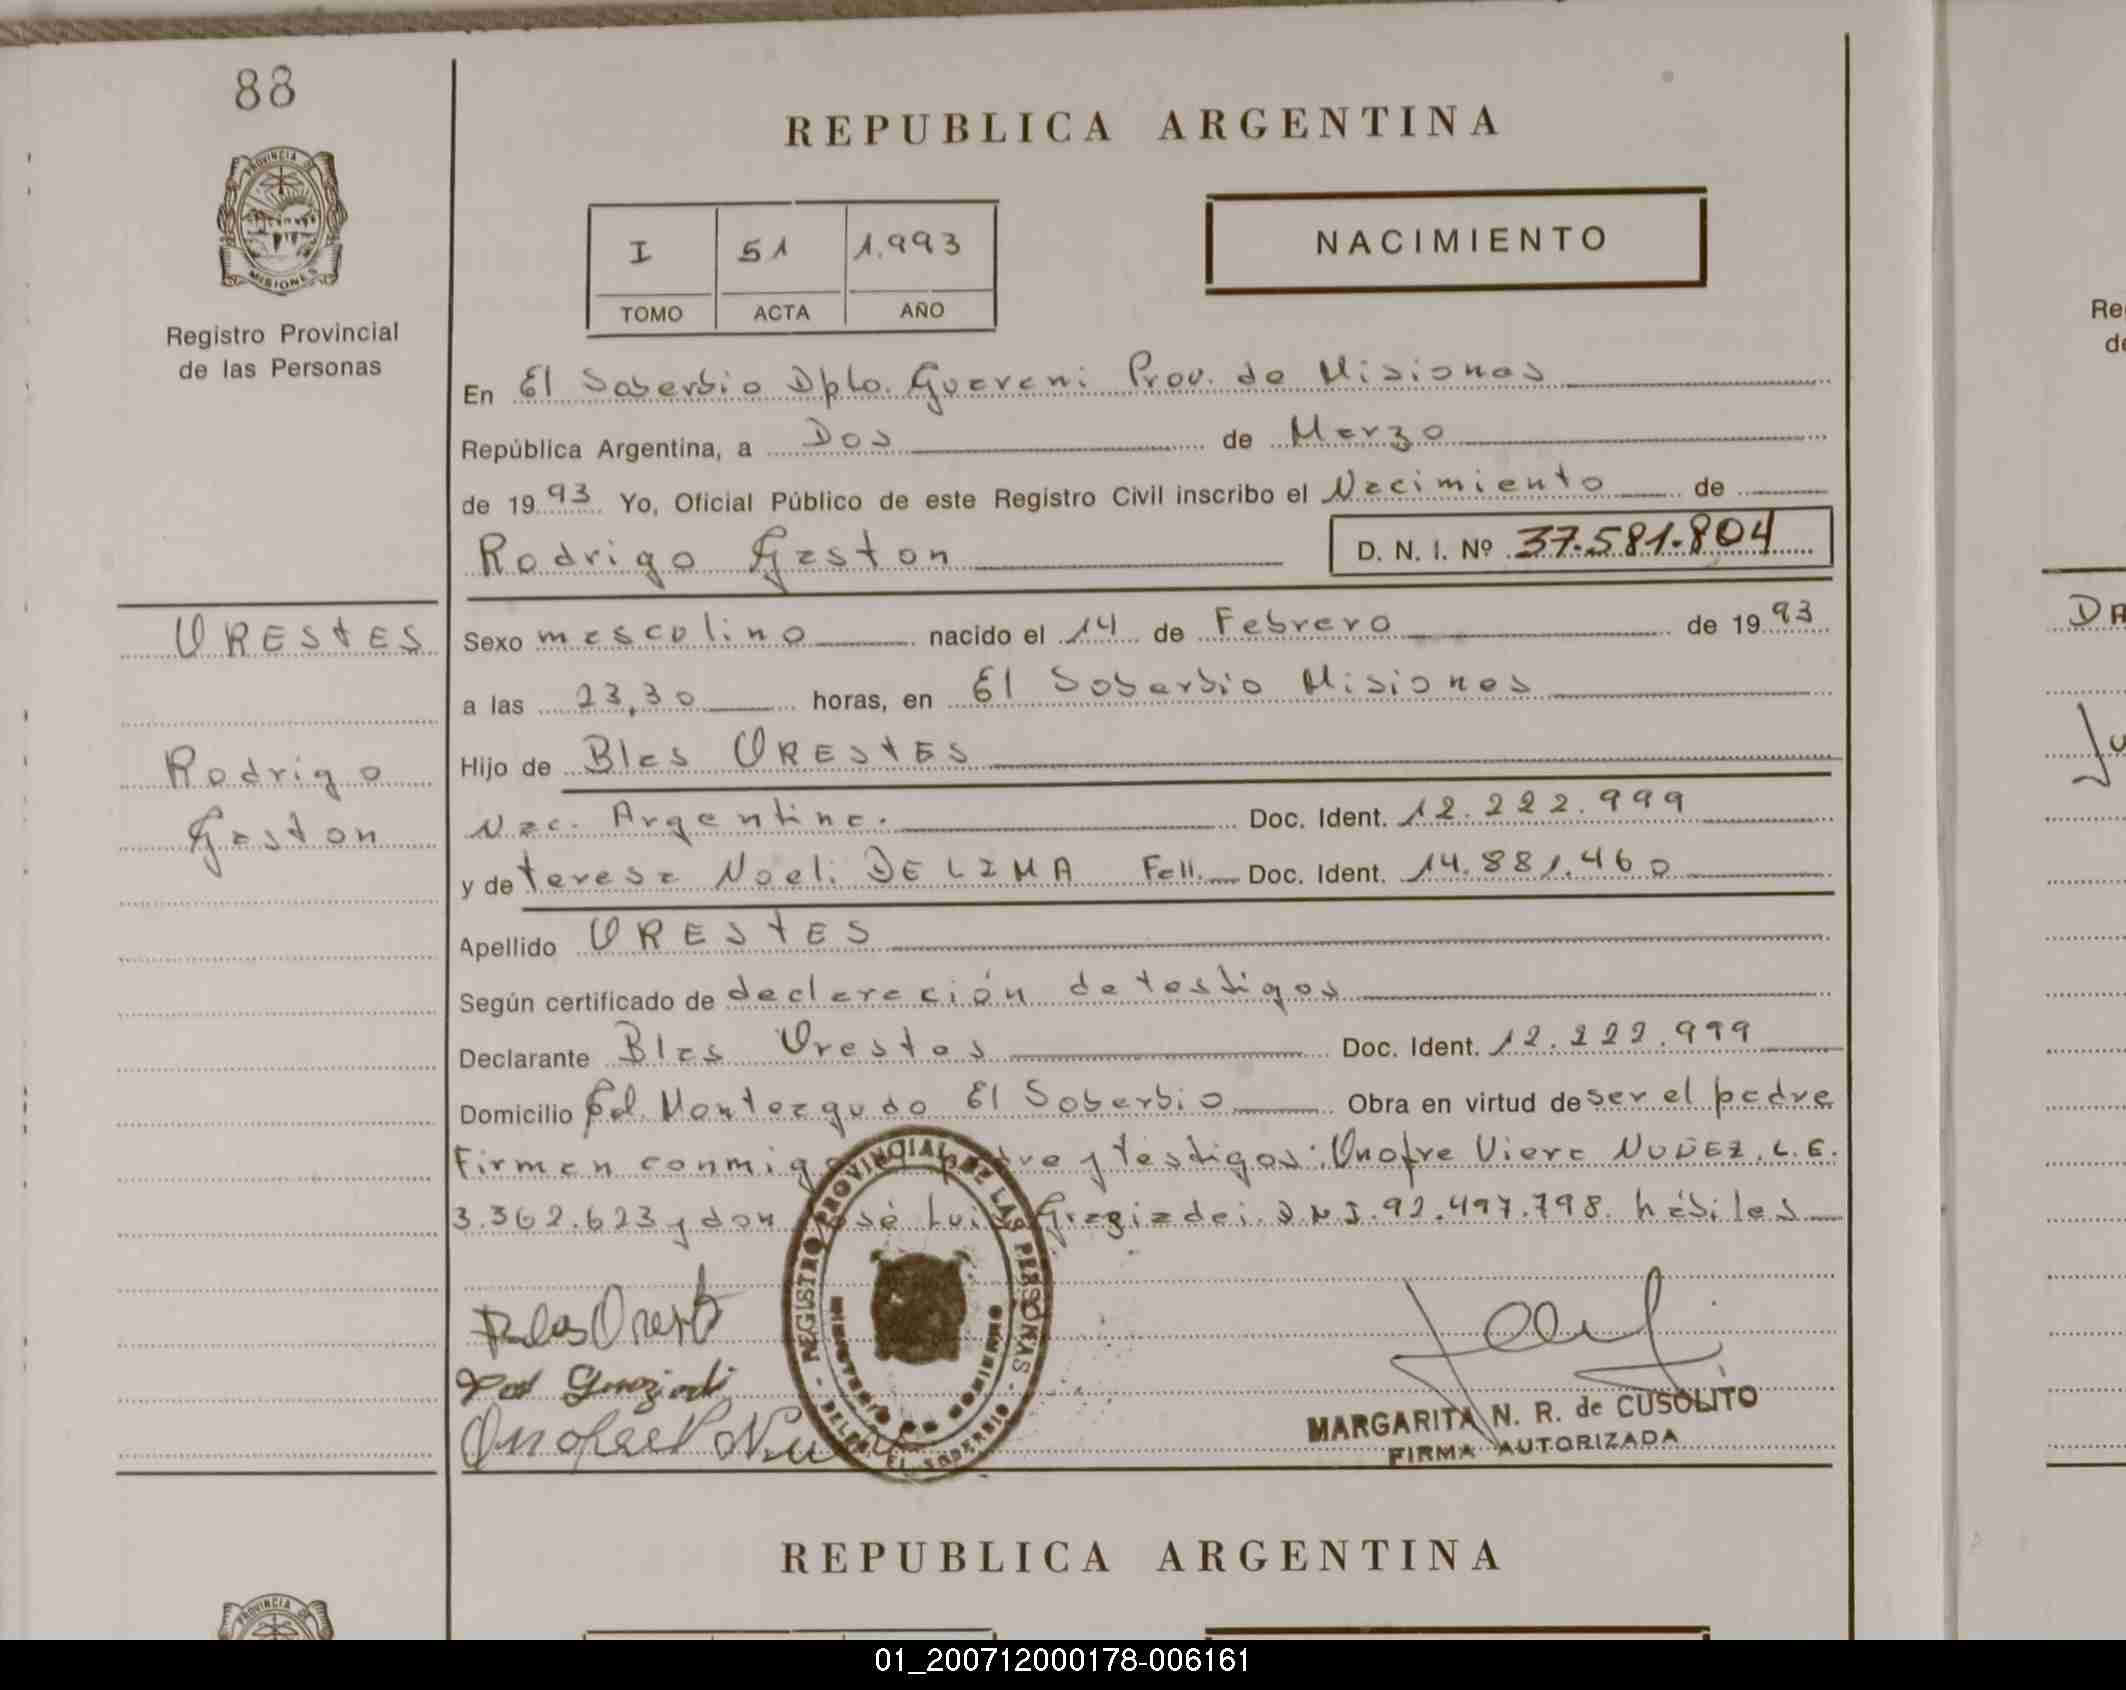 88
PROVINCIA DE
MISIONES
Registro Provincial
de las Personas
REPUBLICA ARGENTINA
I 51 1.993
TOMO ACTA AÑO
NACIMIENTO
En El Soberbio Dpto. Guarani Prov. de Misiones
República Argentina, a Dos de Marzo
de 1993 Yo, Oficial Público de este Registro Civil inscribo el Nacimiento de
Rodrigo Gaston D. N. I. Nº 37.581.804
ORESTES
Rodrigo
Gaston
Sexo masculino nacido el 14 de Febrero de 1993
a las 23,30 horas, en El Soberbio Misiones
Hijo de Blas ORESTES
Nac. Argentina. Doc. Ident. 12.222.999
y de teresa Noeli DE LIMA Fall. Doc. Ident. 14.881.460
Apellido ORESTES
Según certificado de declaración de testigos
Declarante Blas Orestes Doc. Ident. 12.222.999
Domicilio Cd. Monteagudo El Soberbio Obra en virtud de ser el padre
Firman conmigo padre y testigos: Onofre Viera NUÑEZ. L.E.
3.362.623 y don José Luis Graziadei D.N.I. 92.497.798 hábiles
REGISTRO PROVINCIAL DE LAS PERSONAS
MINISTERIO DE GOBIERNO
EL SOBERBIO
MARGARITA N. R. de CUSOLITO
FIRMA AUTORIZADA
REPUBLICA ARGENTINA
PROVINCIA DE
01_200712000178-006161